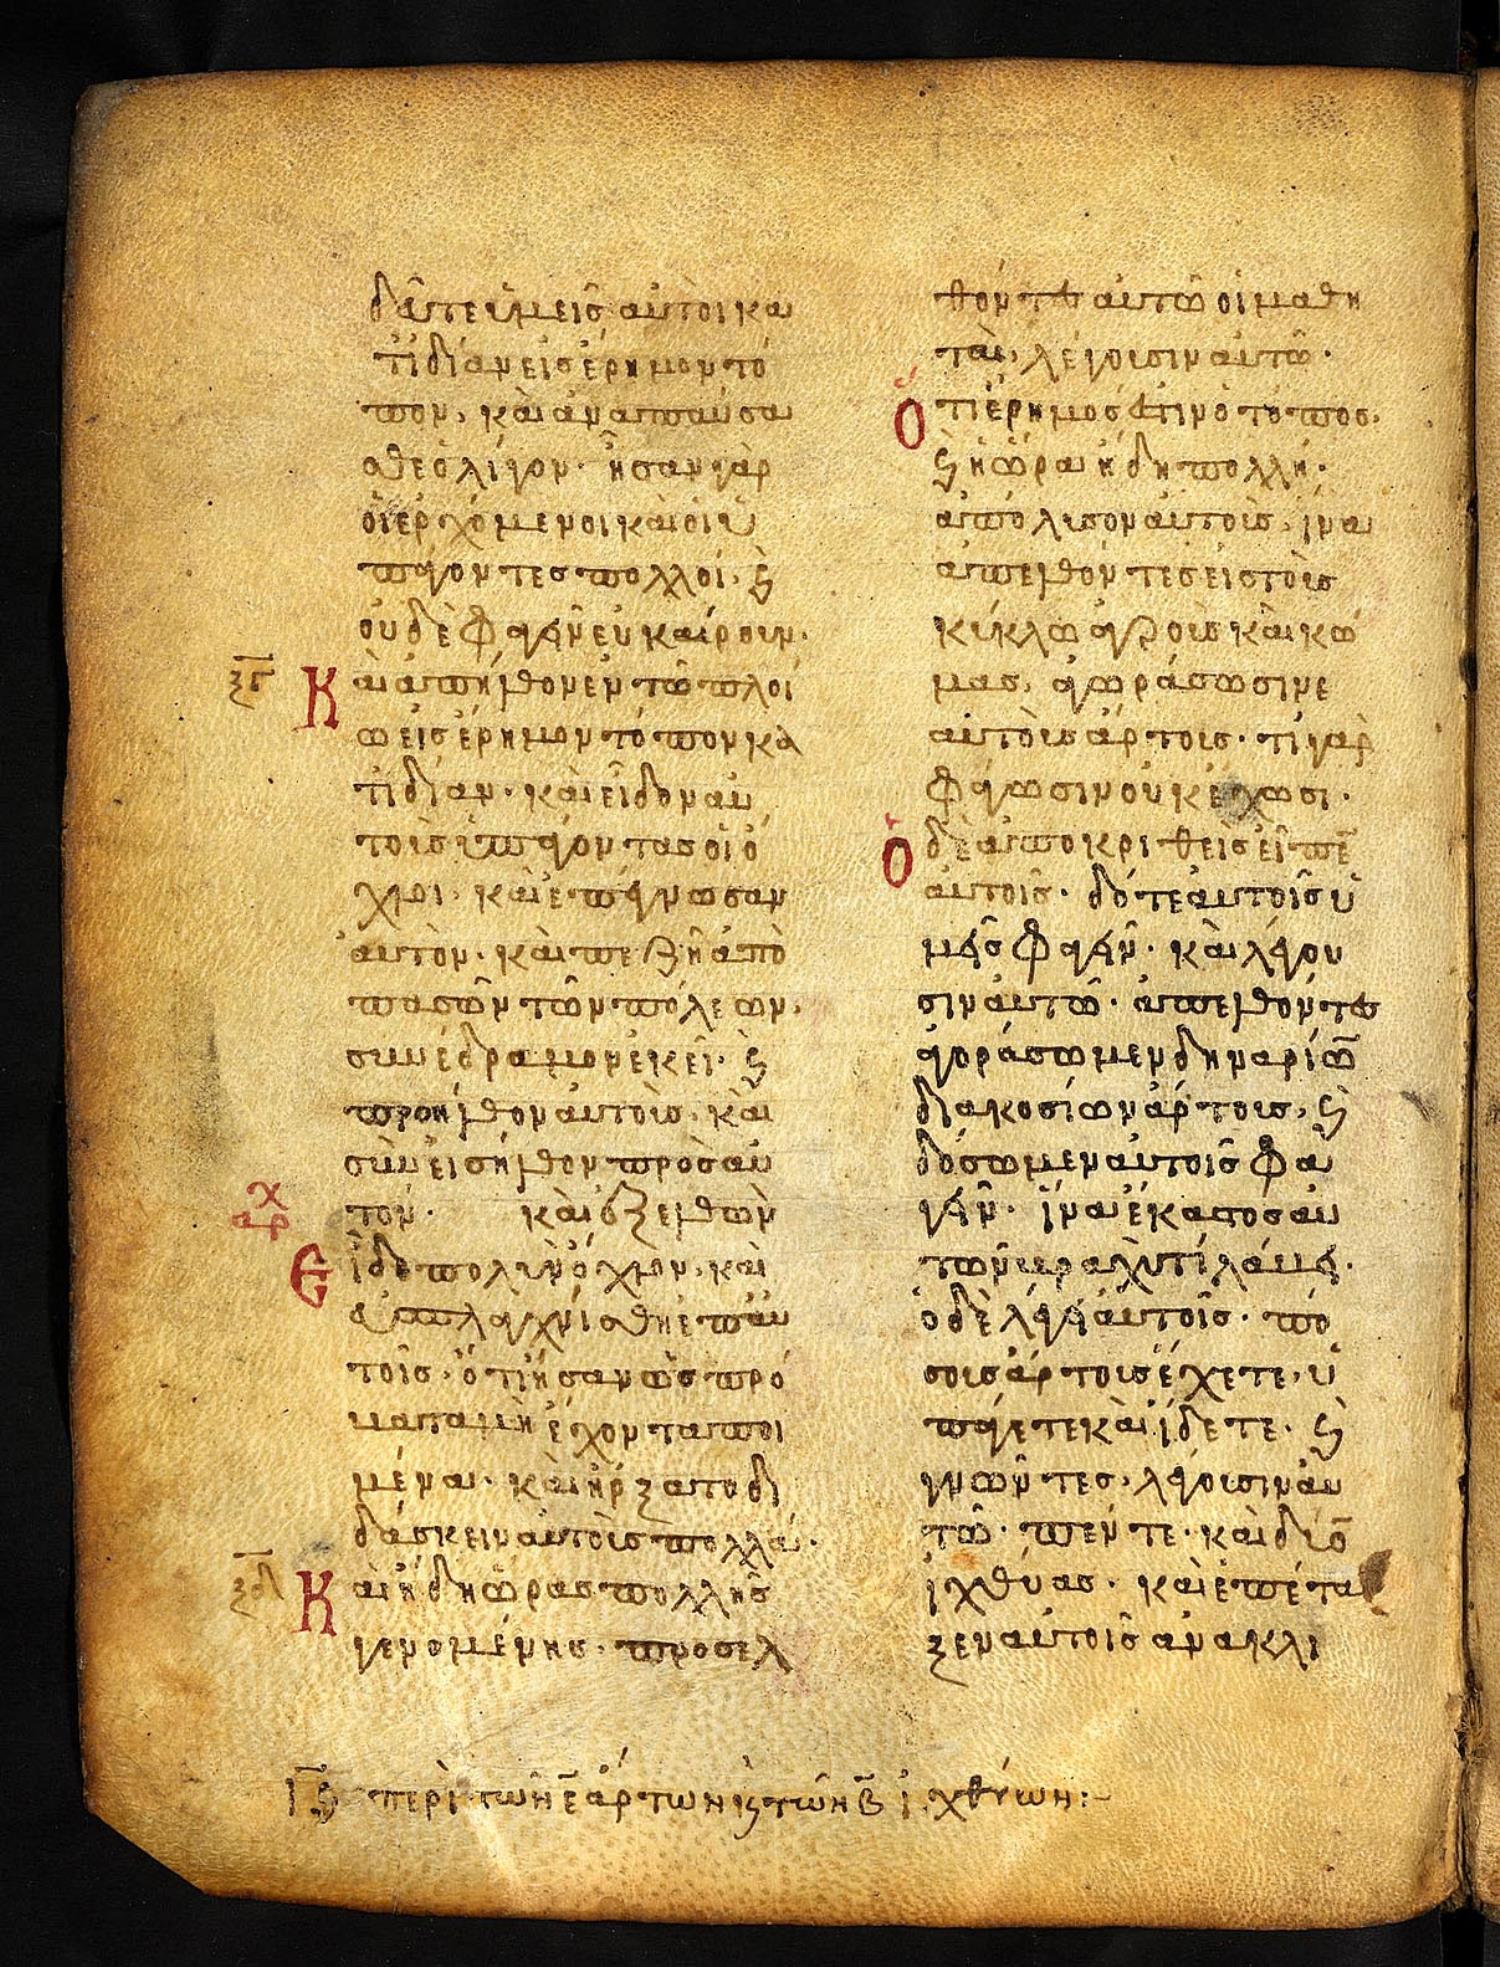 δεῦτε ὑμεῖς αὐτοὶ κα
τ ἰδίαν εἰς ἔρημον τό
πον, καὶ ἀναπαύσα
σθε ὀλίγον· ἦσαν γὰρ
οἱ ἐρχόμενοι καὶ οἱ ὑ
πάγοντες πολλοί, ϗ
οὐδὲ φαγεῖν εὐκαίρουν·
ξγ Καὶ ἀπῆλθον ἐν τῶ πλοί
ω εἰς ἔρημον τόπον κα
τ ἰδίαν· καὶ εἶδον αὐ
τοὺς ὑπάγοντας οἱ ὄ
χλοι· καὶ ἐπέγνωσαν
αὐτὸν· καὶ πεζῆ ἀπὸ
πασῶν τῶν πόλεων,
συνέδραμον ἐκεῖ· ϗ
προῆλθον αὐτοὺς, καὶ
συνεισῆλθον πρὸς αὐ
τόν· καὶ ἐξελθὼν
αρχ
Εἶδε πολὺν ὄχλον, καὶ
ἐσπλαγχνίσθη ἐπ αὐ
τοῖς· ὅτι ἦσαν ὡς πρό
βατα μὴ ἔχοντα ποι
μένα· καὶ ἤρξατο δι
δάσκειν αὐτοὺς πολλά·
ξδ Καὶ ἤδη ὥρας πολλῆς
γενομένης· προσελ
θόντες αὐτῶ οἱ μαθη
ταὶ, λέγουσιν αὐτῶ·
Ὅτι ἔρημός ἐστιν ὁ τόπος,
ϗ ἡ ὥρα ἤδη πολλή·
ἀπόλυσον αὐτοὺς, ἵνα
ἀπελθόντες εἰς τοὺς
κύκλω ἀγροὺς καὶ κώ
μας, ἀγοράσωσιν ἑ
αυτοὺς ἄρτους· τί γὰρ
φάγωσιν οὐκ ἔχουσι·
Ὁ δὲ ἀποκριθεὶς εἶπε̄
αὐτοῖς· δότε αὐτοῖς ὑ
μεῖς φαγεῖν· καὶ λέγου
σιν αὐτῶ· ἀπελθόντες
ἀγοράσωμεν δηναρίω̄
διακοσίων ἄρτους, ϗ
δόσωμεν αὐτοῖς φα
γεῖν· ἵνα ἕκαστος αὐ
τῶν βραχύ τι λάβη·
ὁ δὲ λέγει αὐτοῖς· πό
σους ἄρτους ἔχετε, ὑ
πάγετε καὶ ἴδετε· ϗ
γνῶντες, λέγουσιν αὐ
τῶ· πέντε· καὶ δύο
ἰχθύας· καὶ ἐπέτα
ξεν αὐτοῖς ἀνακλι
ιϛ περὶ τῶν ε̄ ἄρτων ϗ τῶν β̄ ἰχθύων:~